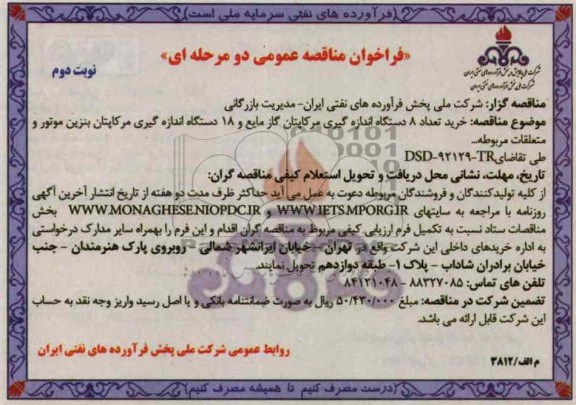 (فرآورده های نفتی سرمایه ملی است)
«فراخوان مناقصه عمومی دو مرحله ای»
نوبت دوم
شرکت ملی پالایش و پخش فرآورده های نفتی ایران
شرکت ملی پخش فرآورده های نفتی ایران
مناقصه گزار: شرکت ملی پخش فرآورده های نفتی ایران- مدیریت بازرگانی
موضوع مناقصه: خرید تعداد ۸ دستگاه اندازه گیری مرکاپتان گاز مایع و ۱۸ دستگاه اندازه گیری مرکاپتان بنزین موتور و
متعلقات مربوطه...
طی تقاضای DSD-۹۲۱۲۹-TR
تاریخ، مهلت، نشانی محل دریافت و تحویل استعلام کیفی مناقصه گران:
از کلیه تولیدکنندگان و فروشندگان مربوطه دعوت به عمل می آید حداکثر ظرف مدت دو هفته از تاریخ انتشار آخرین آگهی
روزنامه با مراجعه به سایتهای WWW.IETS.MPORG.IR و WWW.MONAGHESE.NIOPDC.IR بخش
مناقصات ستاد نسبت به تکمیل فرم ارزیابی کیفی مربوط به مناقصه گران اقدام و این فرم را بهمراه سایر مدارک درخواستی
به اداره خریدهای داخلی این شرکت واقع در تهران - خیابان ایرانشهر شمالی - روبروی پارک هنرمندان - جنب
خیابان برادران شاداب - پلاک ۱- طبقه دوازدهم تحویل نمایند.
تلفن های تماس: ۸۸۳۲۷۰۸۵ - ۸۴۱۲۱۰۴۸
تضمین شرکت در مناقصه: مبلغ ۵۰/۴۳۰/۰۰۰ ریال به صورت ضمانتنامه بانکی و یا اصل رسید واریز وجه نقد به حساب
این شرکت قابل ارائه می باشد.
روابط عمومی شرکت ملی پخش فرآورده های نفتی ایران
م الف/۳۸۱۲
(درست مصرف کنیم تا همیشه مصرف کنیم)